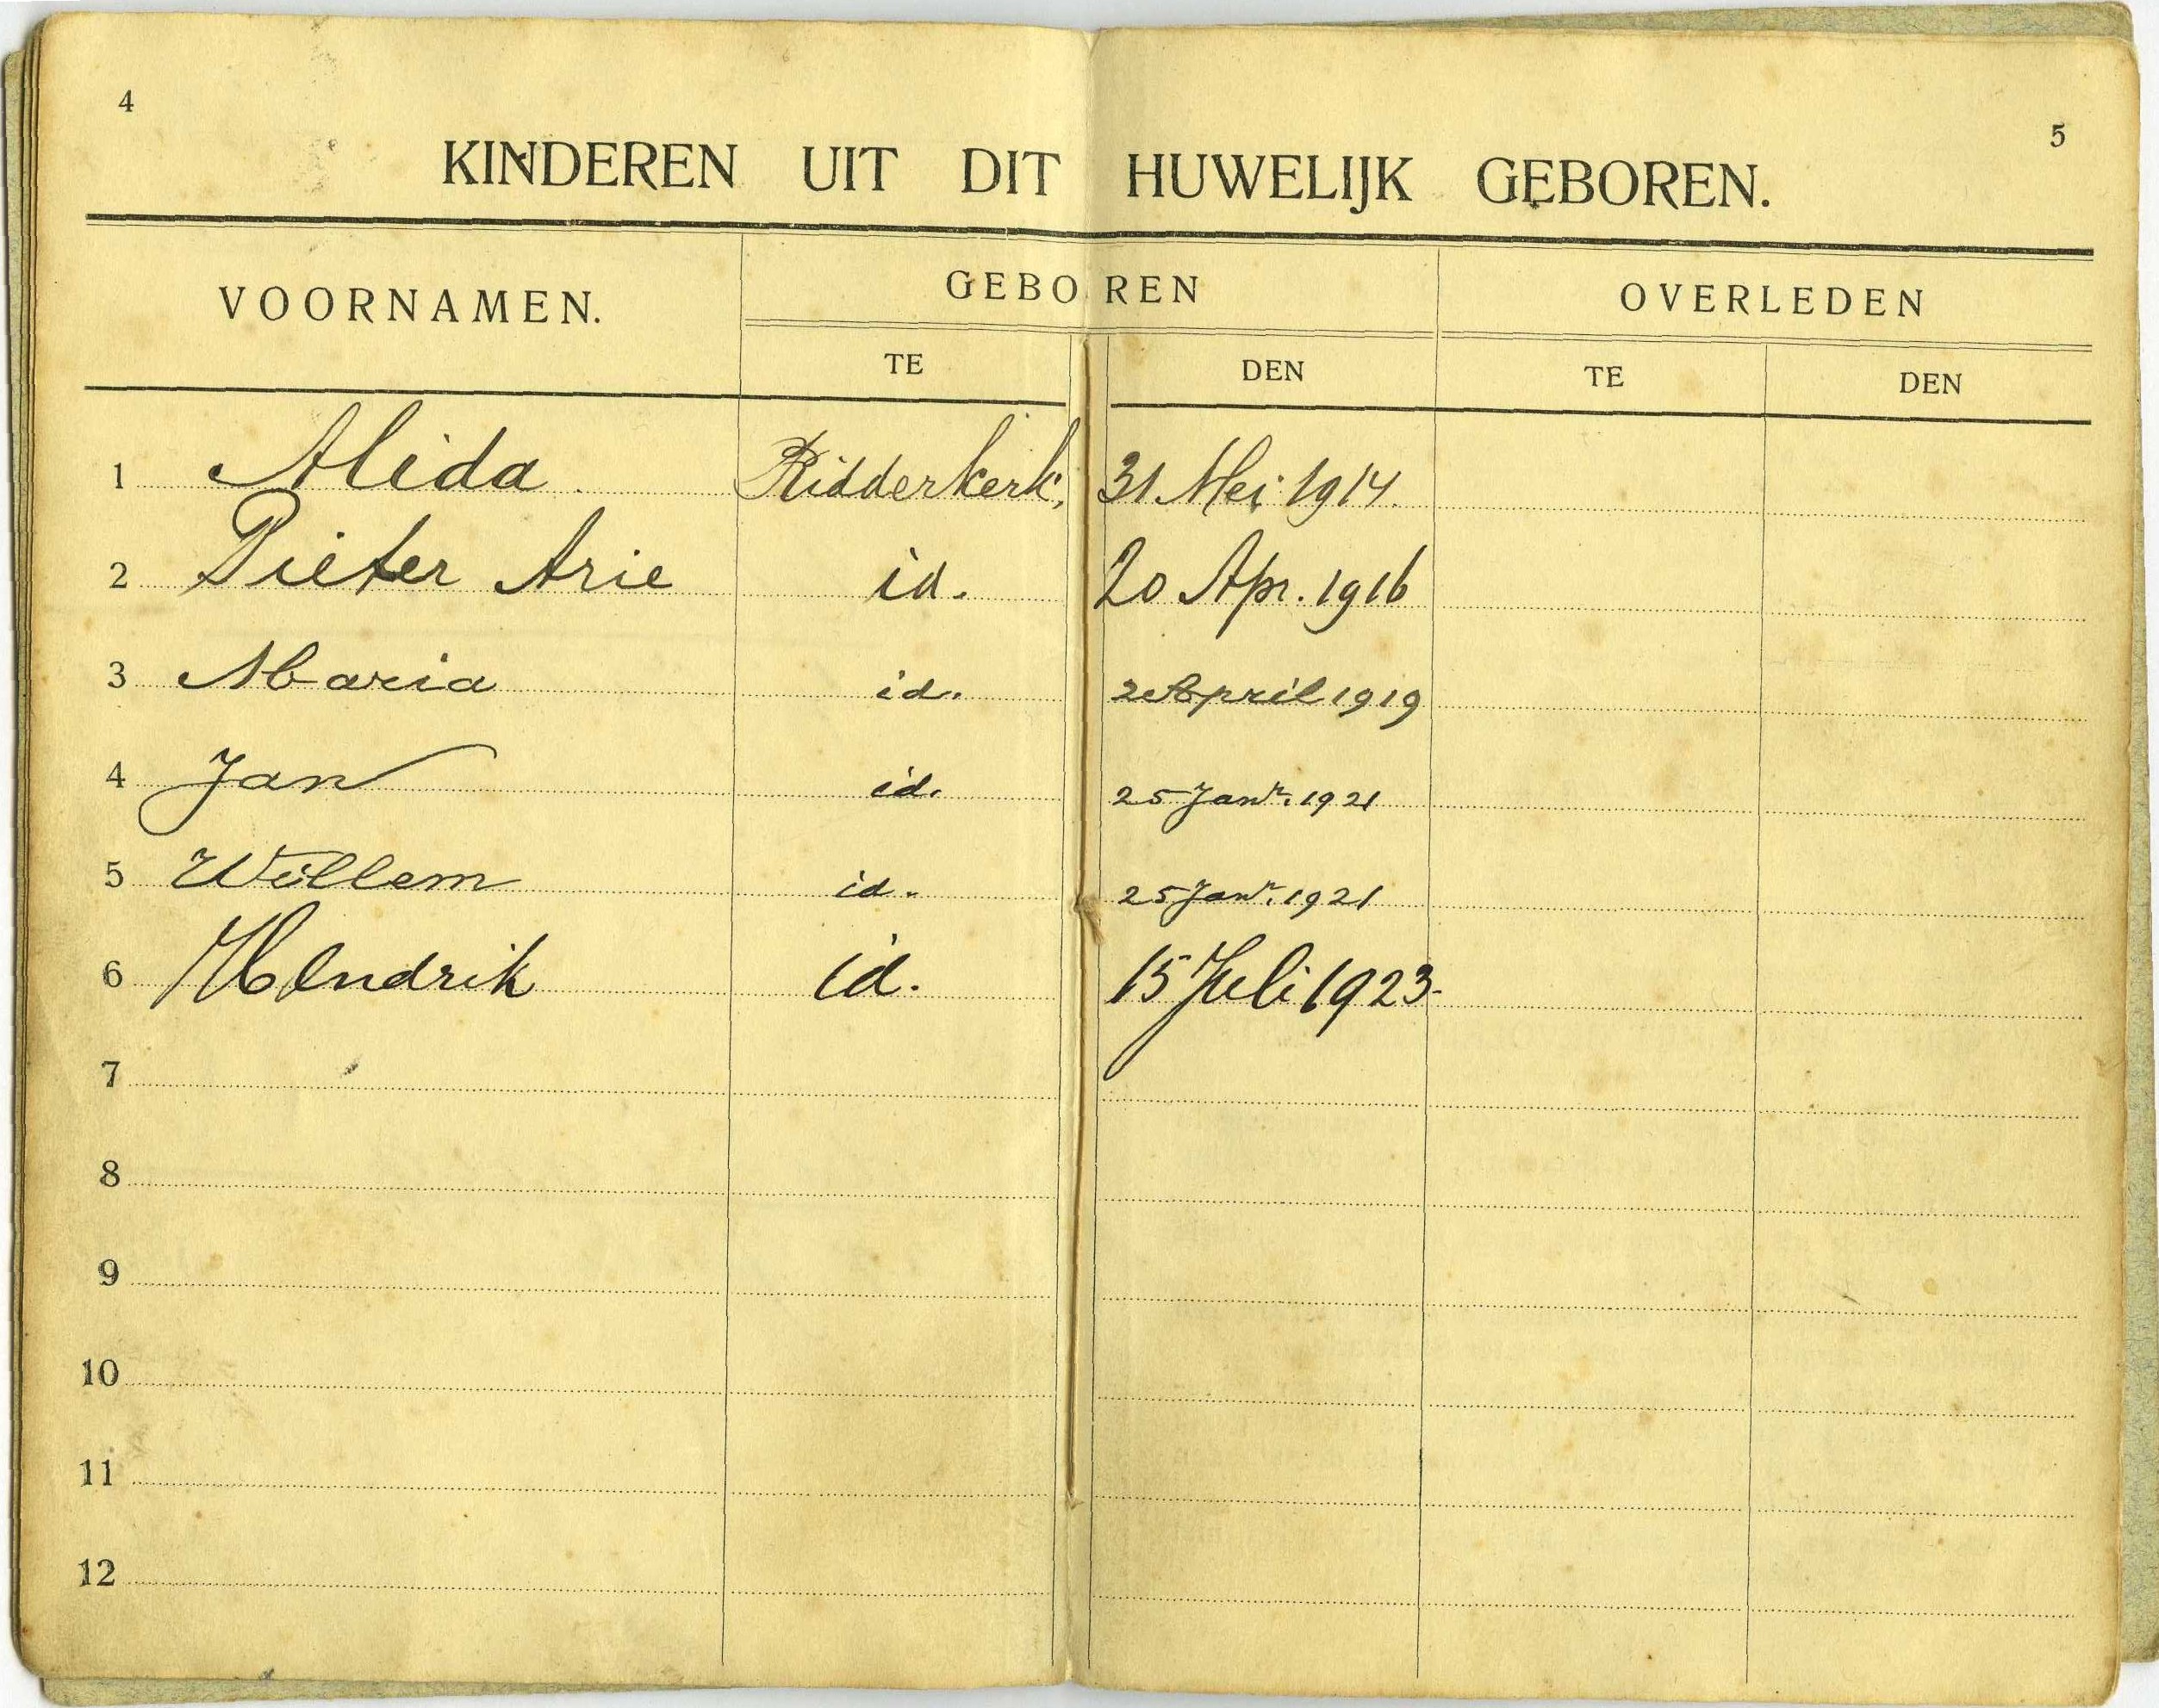 4
5
KINDEREN UIT DIT HUWELIJK GEBOREN.
VOORNAMEN. GEBOREN OVERLEDEN
TE DEN TE DEN
1 Alida Ridderkerk, 31 Mei 1914.
2 Pieter Arie id. 20 Apr. 1916
3 Maria id. 2 April 1919
4 Jan id. 25 Janr. 1921
5 Willem id. 25 Janr. 1921
6 Hendrik id. 15 Juli 1923.
7
8
9
10
11
12